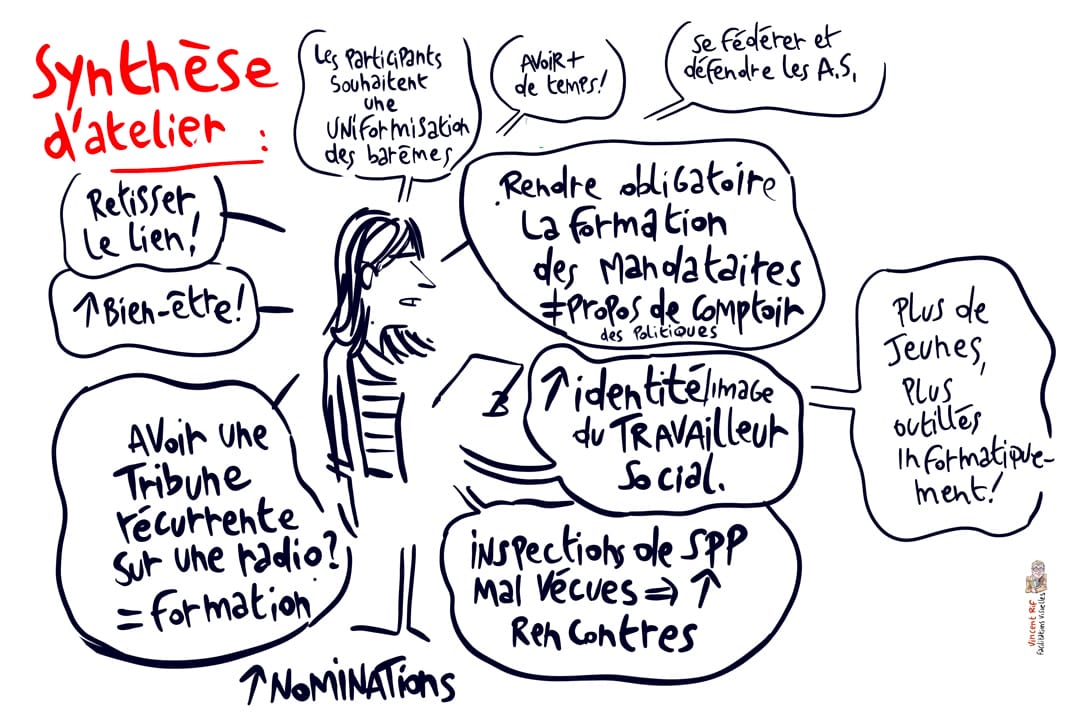 Synthèse
d'atelier :
Les Participants
Souhaitent
une
UNiformisation
des barêmes
AVoiR +
de temps!
Se Fédérer et
défendre les A.S.
Retisser
Le Lien!
↑ Bien-être!
Rendre obligatoire
La formation
des Mandataires
≠ Propos de Comptoir
des Politiques
↑ identité/image
du TRAVAilleur
Social.
Plus de
Jeunes,
Plus
outillés
Informatique-
ment!
AVoir une
Tribune
récurrente
Sur une radio?
= formation
iNSpections de SPP
Mal Vécues ⇒ ↑
Rencontres
↑ NoMiNATions
Vincent Rif
Facilitations Visuelles